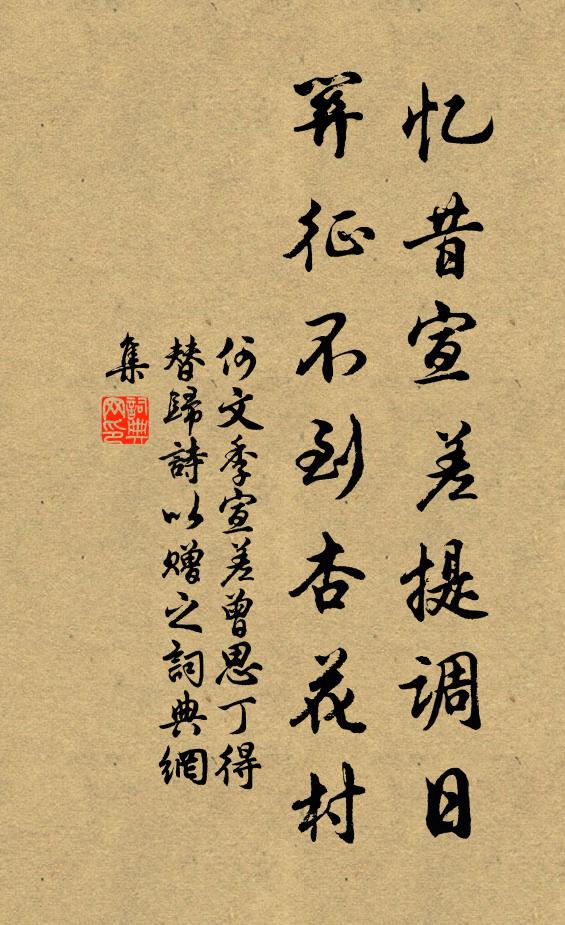 忆昔宣差提调日
筭征不到杏花村
何文季宣差曾思丁得
替歸詩以赠之詞典網
集
詞典网印